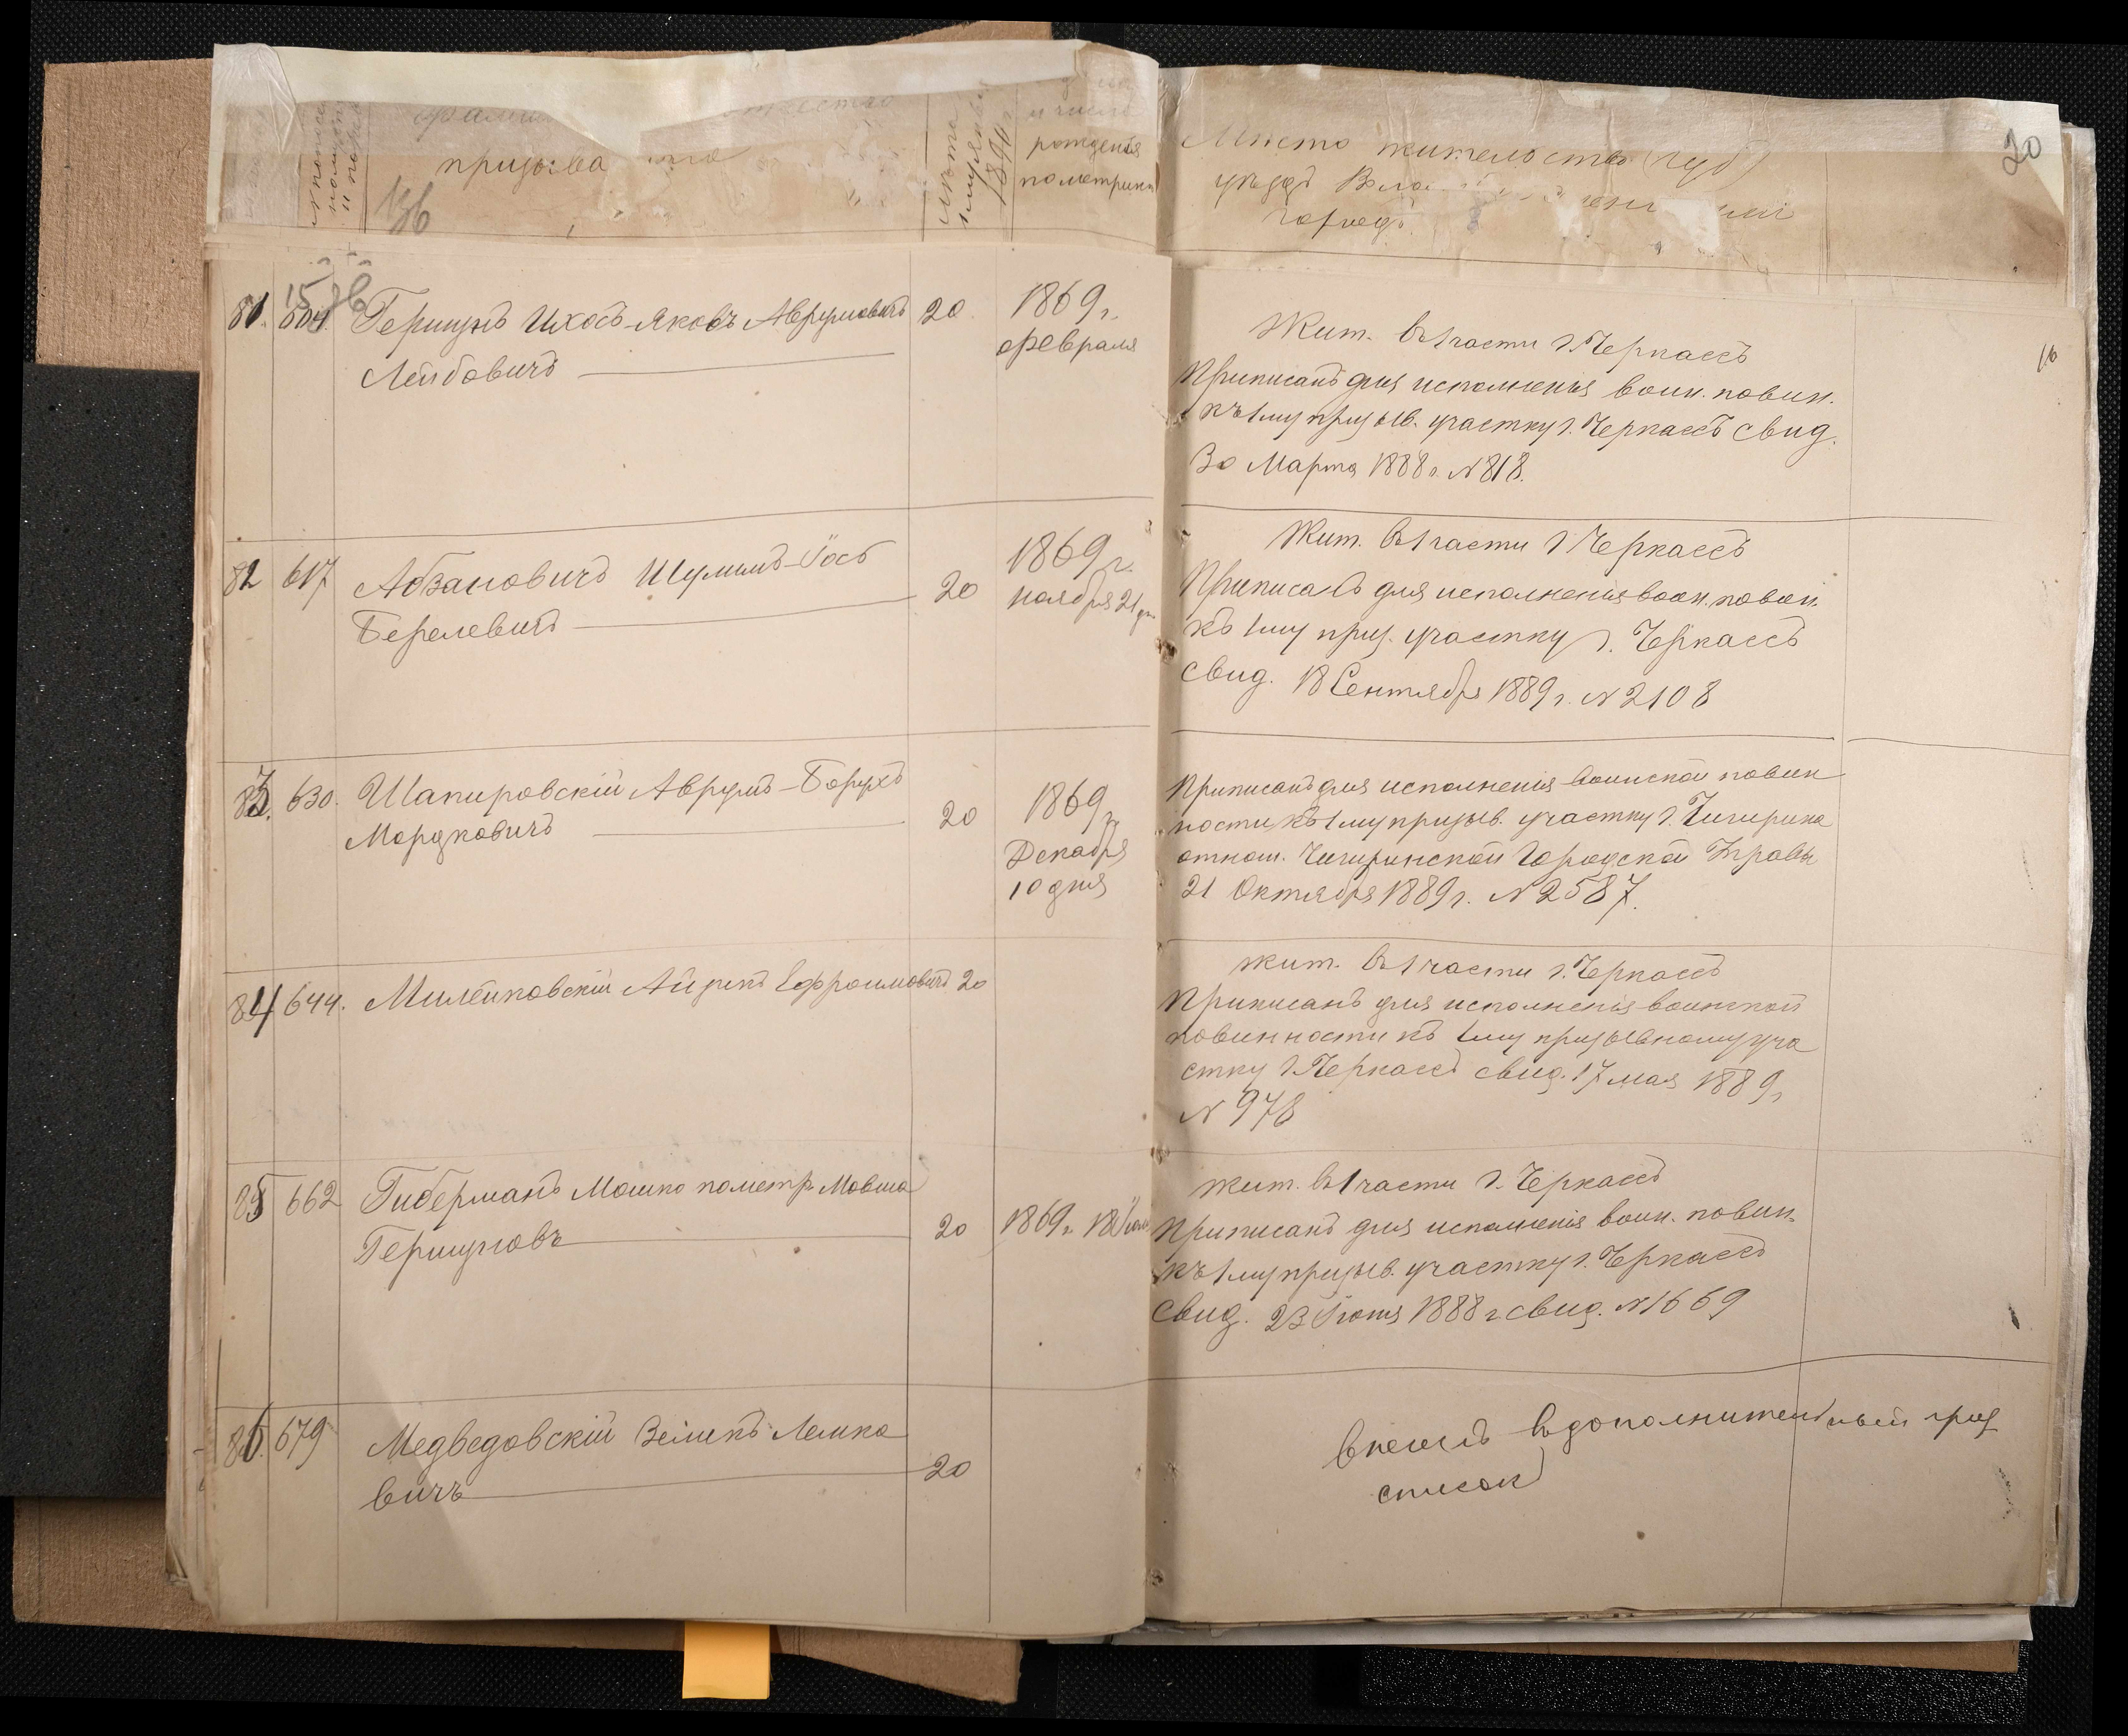 призыва
Лѣта
къ 1му янв.
1890 г.
и число
рожденія
по метрикѣ
Мѣсто жительства (губ)
уѣздъ
городъ
20
136
81. 604. Гершунъ Ихось-Яковъ Аврумовичъ 20 1869 г.
Лейбовичъ февраля
Жит. въ 1 части г. Черкассъ
Приписанъ для исполненія воин. повин.
къ 1му призыв. участку г. Черкассъ свид.
30 Марта 1888 г. N 818.
82 617 Абзановичъ Шулимъ-Іосъ 20 1869 г.
Берелевичъ ноября 21 дн
Жит. въ 1 части г. Черкассъ
Приписанъ для исполненія воин. повин.
къ 1му приз. участку г. Черкассъ
свид. 18 Сентября 1889 г. N 2108
83. 630. Шапировскій Аврумъ-Борухъ 20 1869 г.
Мордковичъ Декабря
10 дня
Приписанъ для исполненія воинской повин
ности къ 1му призыв. участку г. Чигирина
отнош. Чигиринской Городской Управы
21 Октября 1889 г. N 2587.
84 644. Милейковскій Айзикъ Ефроимовичъ 20
жит. въ 1 части г. Черкассъ
Приписанъ для исполненія воинской
повинности къ 1му призывному уча
стку г. Черкассъ свид. 17 мая 1889 г
N 978
85 662 Гиберманъ Мошко по метр. Мовша
Гершуновъ 20 1869 г. 18
жит. въ 1 части г. Черкассъ
Приписанъ для исполненія воин. повин.
къ 1му призыв. участку г. Черкассъ
свид. 23 Іюня 1888 г свид. N 1669
86. 679 Медведовскій Зейликъ Лемко
вичъ 20
внесенъ въ дополнительный приз
списокъ